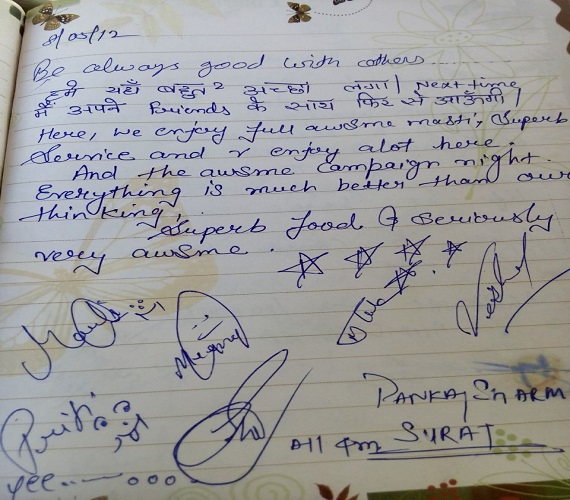 8/05/12
Be always good with others......
हमे यहाँ बहुत2 अच्छा लगा| Next time
मैं अपने friends के साथ फिर से आऊँगी|
Here, we enjoy full awsme masti, Superb
Service and r enjoy alot here.
And the awsme Campaign night.
Everything is much better than our
thinking,
Superb food & seriously
very awsme.
Priti
PANKAJ SHARM
All fm SURAT
yee..——ooo.